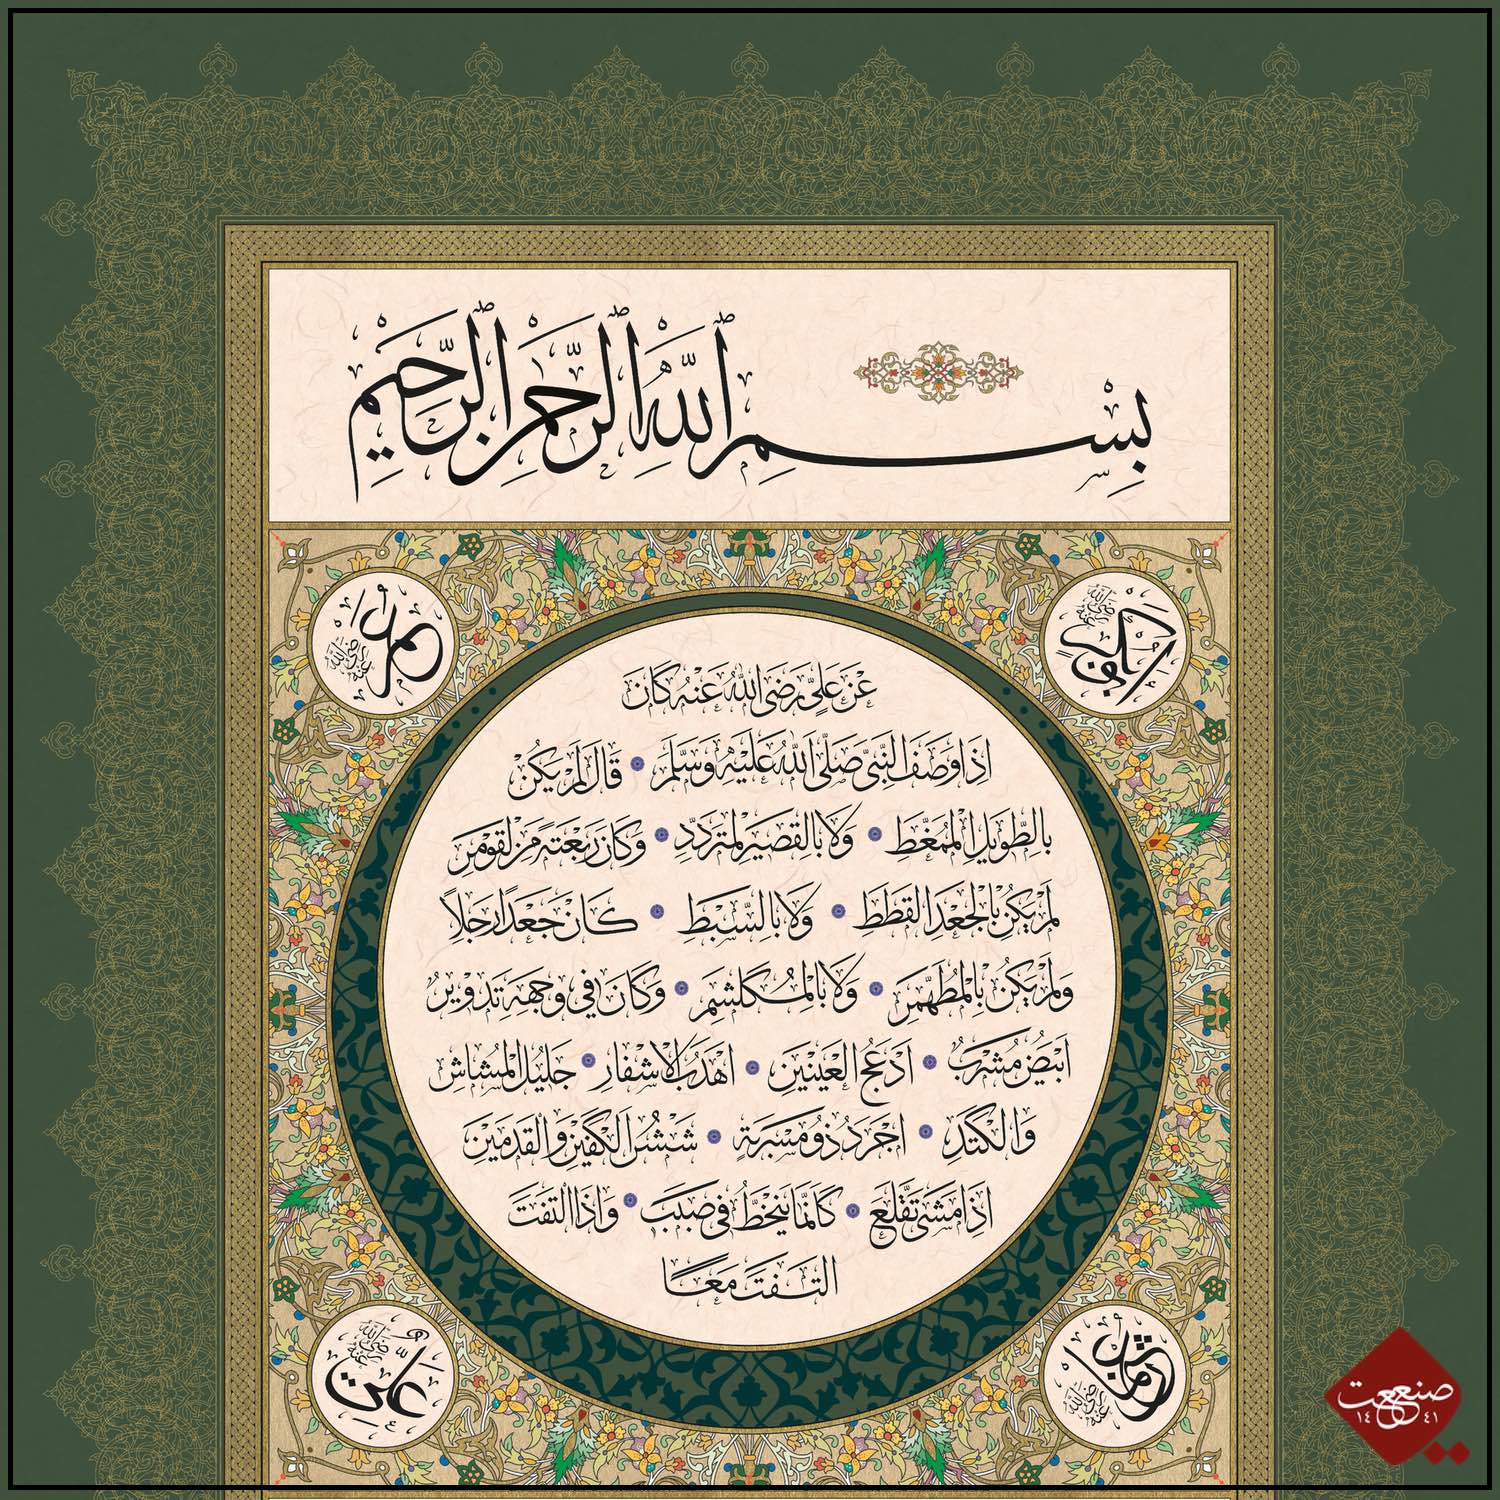 بِسْمِ اللّٰهِ الرَّحْمٰنِ الرَّحِيْمِ
ابوبكر رضي الله عنه
عمر رضي الله عنه
عَنْ عَلِيٍّ رَضِيَ اللهُ عَنْهُ كَانَ
اِذَا وَصَفَ النَّبِيَّ صَلَّى اللهُ عَلَيْهِ وَسَلَّمَ قَالَ لَمْ يَكُنْ
بِالطَّوِيْلِ الْمُمَغَّطِ وَلَا بِالْقَصِيْرِ الْمُتَرَدِّدِ وَكَانَ رَبْعَةً مِنَ الْقَوْمِ
لَمْ يَكُنْ بِالْجَعْدِ الْقَطَطِ وَلَا بِالسَّبْطِ كَانَ جَعْدًا رَجِلًا
وَلَمْ يَكُنْ بِالْمُطَهَّمِ وَلَا بِالْمُكَلْثَمِ وَكَانَ فِي وَجْهِهِ تَدْوِيْرٌ
اَبْيَضُ مُشْرَبٌ اَدْعَجُ الْعَيْنَيْنِ اَهْدَبُ الْاَشْفَارِ جَلِيْلُ الْمُشَاشِ
وَالْكَتَدِ اَجْرَدُ ذُو مَسْرَبَةٍ شَثْنُ الْكَفَّيْنِ وَالْقَدَمَيْنِ
اِذَا مَشَى تَقَلَّعَ كَاَنَّمَا يَنْحَطُّ فِي صَبَبٍ وَاِذَا الْتَفَتَ
الْتَفَتَ مَعًا
عثمان رضي الله عنه
علي رضي الله عنه
صنعت
١٤٤١